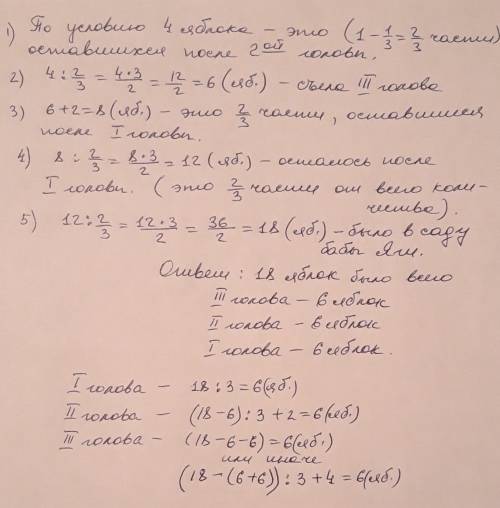 1) По условию 4 яблока – это (1 – 1/3 = 2/3 части)
оставшихся после 2ой головы.
2) 4 : 2/3 = 4·3/2 = 12/2 = 6 (яб.) – съела III голова
3) 6+2=8 (яб.) – это 2/3 части, оставшиеся
после I головы.
4) 8 : 2/3 = 8·3/2 = 12 (яб.) – осталось после
I головы. (это 2/3 части от всего коли-
чества).
5) 12 : 2/3 = 12·3/2 = 36/2 = 18 (яб.) – было в саду
бабы Яги.
Ответ: 18 яблок было всего
III голова – 6 яблок
II голова – 6 яблок
I голова – 6 яблок.
I голова – 18 : 3 = 6(яб.)
II голова – (18-6) : 3 + 2 = 6(яб.)
III голова – (18-6-6) = 6(яб.)
или иначе
(18 – (6+6)) : 3 + 4 = 6(яб.)